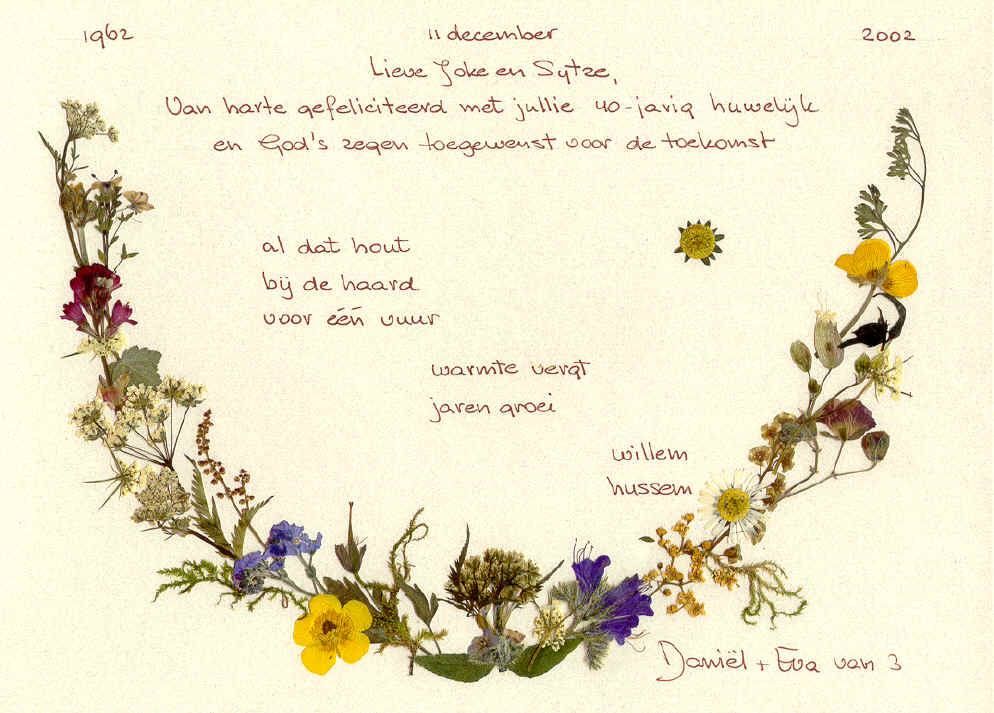 1962 11 december 2002
Lieve Joke en Sytze,
Van harte gefeliciteerd met jullie 40-jarig huwelijk
en God's zegen toegewenst voor de toekomst
al dat hout
bij de haard
voor één vuur
warmte vergt
jaren groei
willem
hussem
Daniël + Eva van 3